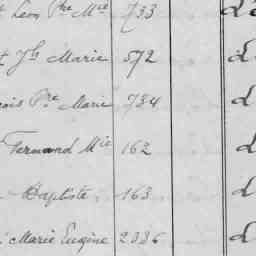 Leon Pre Mie 733 d
t Jh Marie 572 d
ois Pre Marie 734 d
Fernand Mie 162 d
Baptiste 163 d
Marie Eugène 2336 d